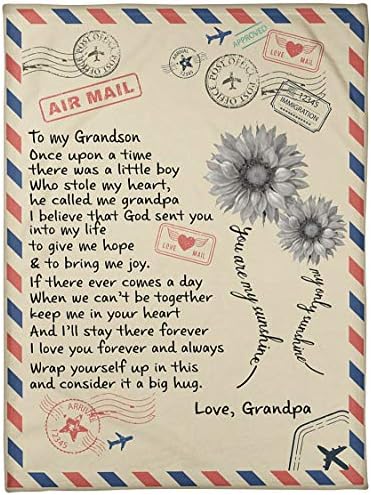 POST OFFICE
POST OFFICE
ARRIVAL
APPROVED
LOVE MAIL
POST OFFICE
POST OFFICE
12345
IMMIGRATION
AIR MAIL
To my Grandson
Once upon a time
there was a little boy
Who stole my heart,
he called me grandpa
I believe that God sent you
into my life
to give me hope
& to bring me joy.
LOVE MAIL
If there ever comes a day
When we can't be together
keep me in your heart
And I'll stay there forever
I love you forever and always
Wrap yourself up in this
and consider it a big hug.
You are my sunshine
my only sunshine
Love, Grandpa
ARRIVAL
12345